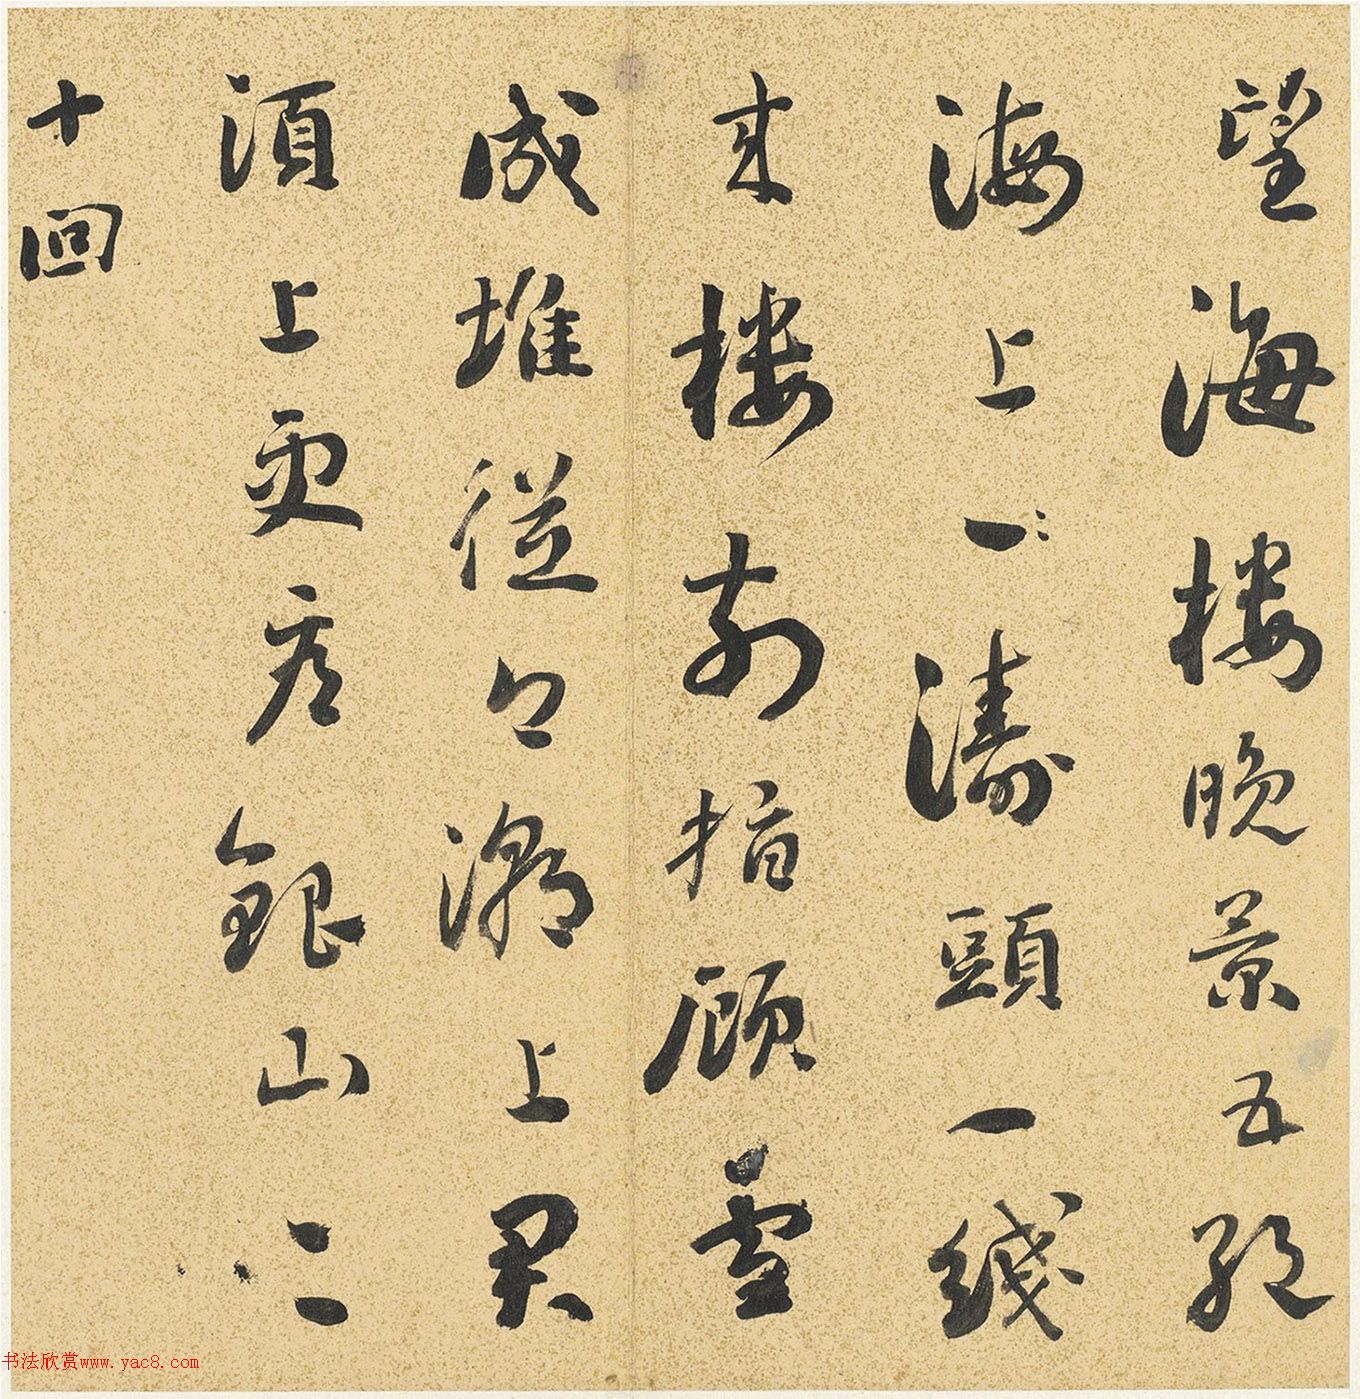 望海樓晚景五絕
海上一濤頭一綫
来樓前指顧雪
成堆從今潮上君
須上更看銀山二
十回
书法欣赏www.yac8.com